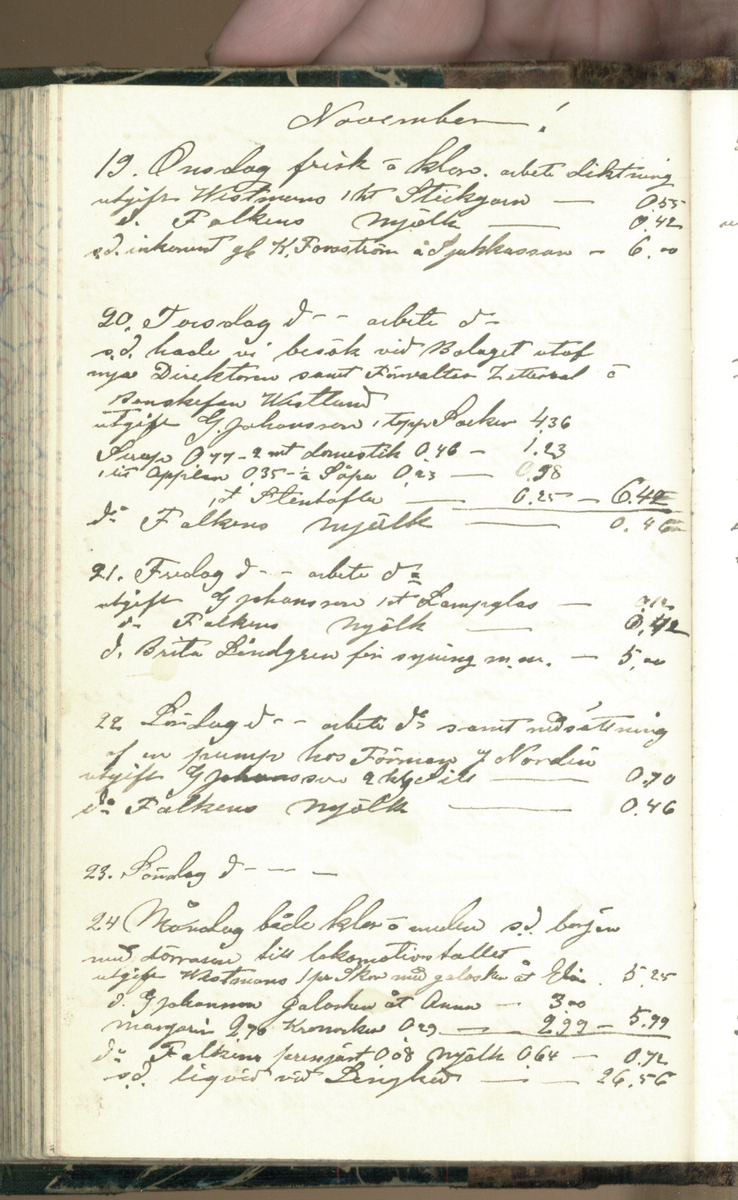 November !
19. Onsdag frisk o klar. arbete diktning
utgift Westmans 1 ht Stickgarn — 0.55
d. Falkens Mjölk — 0.42
s.d. inkomst af K. Forsström å Sjukkassan — 6.00
20. Torsdag d - - arbete d -
s.d. hade vi besök vid Bolaget utaf
nya Direktören samt Förvalter Zetterval o
Westlund
utgift G. Johansson 1 topp Socker 4.36
Sirap 0.77 - 2 mt domestik 0.46 — 1.23
0.35 - ½ Såpa 0.23 — 0.58
1 st — 0.25 — 6.42
do Falkens Mjölk — 0.46
21. Fredag d - - arbete do
utgift G Johansson 1 st Lampglas — 0.12
d- Falkens Mjölk — 0.42
d. Brita Lindgren för syning m.m. — 5.00
22 Lördag d - - arbete do samt nedsättning
af en pump hos Förman J Nordin
utgift G Johansson 2 kg Sill — 0.70
do Falkens Mjölk — 0.46
23. Söndag d - - - -
24 Måndag både klar o mulen s.d. börjar
med dörrarne till lokomotivstallet
utgift Westmans 1 par Skor med galosker åt . 5.25
d. G Johansson galosker åt Anna — 3.00
margarin 2.70 0.29 — 2.99 — 5.99
do Falkens 0.08 Mjölk 0.64 — 0.72
s.d. liqvid vid — 26.56